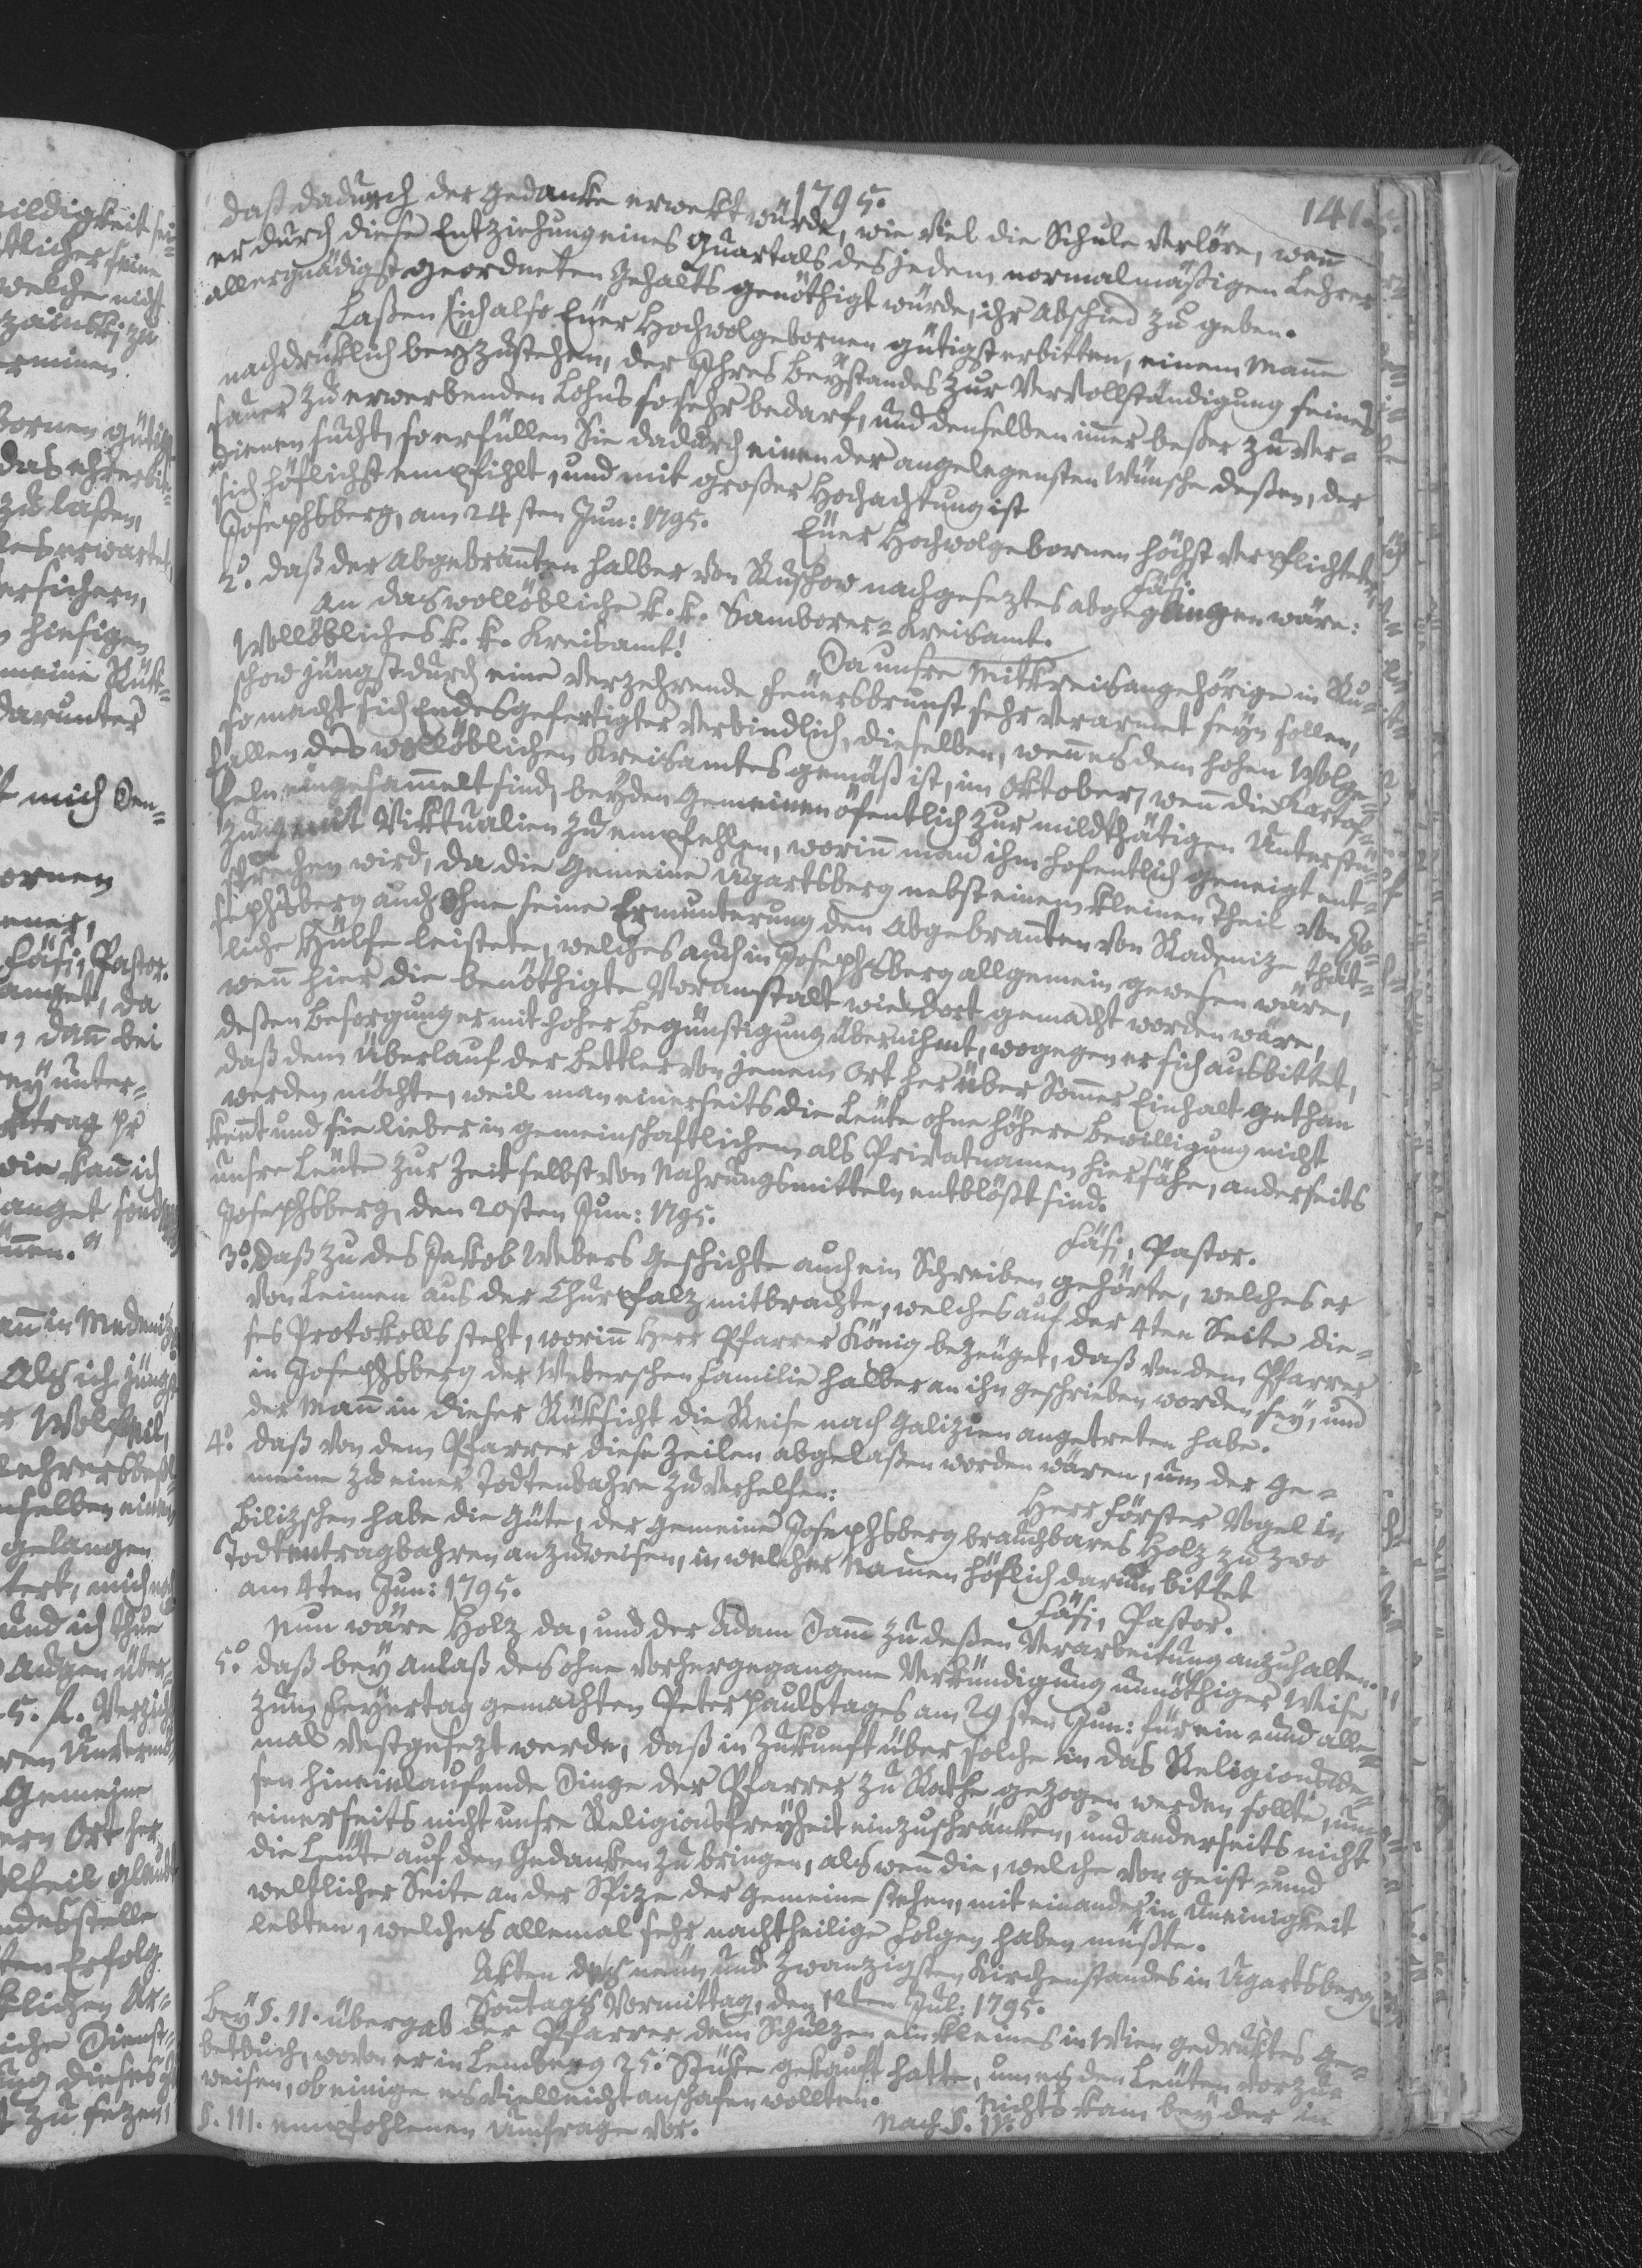 1795.
141.
daß dadurch der Gedanke erwekt würde, wie viel die Schule verlöre, wenn
er durch diese Entziehung eines Quartals des jedem normalmäßigen Lehrer
allergnädigst geordneten Gehalts genöthigt würde, ihr Abschied zu geben.
Laßen Sich also Euer Hochwolgebornen gütigst erbitten, einem Mann
nachdrüklich beyzustehen, der Ihres Beystandes zur Vervollständigung seines
sauer zu erwerbenden Lohns so sehr bedarf, und denselben immer beßer zu ver-
dienen sucht, so erfüllen Sie dadurch einen der angelegensten Wünsche deßen, der
sich höflichst empfihlt, und mit großer Hochachtung ist
Josephsberg, am 24sten Jun: 1795.
Euer Hochwolgebornen höchst verpflichteter
Fäsi.
2.° daß der Abgebrannten halber von Ruschow nachgeseztes abgegangen wäre:
An das wollöbliche k. k. Samborer-Kreisamt.
Wollöbliches k. k. Kreisamt!
Da unsre Mitkreisangehörige in Ru-
schow jüngst durch eine verzehrende Feuersbrunst sehr verarmet seyn sollen,
so macht sich Endesgefertigter verbindlich, dieselben, wenn es dem hohen Wolge-
fallen des wollöblichen Kreisamtes gemäß ist, im Oktober, wenn die Kartof-
feln eingesammelt sind, beyden Gemeinen öfentlich zur mildthätigen Unterstü-
zung mit Viktualien zu empfehlen, worinn man ihm hofentlich geneigt ent-
sprechen wird, da die Gemeine Ugartsberg nebst einem kleinen Theil von Jo-
sephsberg auch ohne seine Ermunterung den Abgebrannten von Radenize thät-
liche Hülfe leistete, welches auch in Josephsberg allgemein gewesen wäre,
wenn hier die benöthigte Voranstalt wie dort gemacht worden wäre,
deßen Besorgung er mit hoher Begünstigung übernihmt, wogegen er sich ausbittet,
daß dem Überlauf der Bettler von jenem Ort her über Sommer Einhalt gethan
werden möchte, weil man einerseits die Leute ohne höhere Bewilligung nicht
kennt und sie lieber in gemeinschaftlichem als Privatnamen hier sähe, anderseits
unsre Leute zur Zeit selbst von Nahrungsmitteln entblößt sind.
Josephsberg, den 20sten Jun: 1795.
Fäsi, Pastor.
3.° Daß zu des Jakob Webers Geschichte auch ein Schreiben gehörte, welches er
von Leimen aus der Churpfalz mitbrachte, welches auf der 4ten Seite die-
ses Protokolls steht, worinn Herr Pfarrer König bezeuget, daß von dem Pfarrer
in Josephsberg der Weberschen Familie halber an ihn geschrieben worden sey, und
der Mann in dieser Rüksicht die Reise nach Galizien angetreten habe.
4.° daß von dem Pfarrer diese Zeilen abgelaßen worden wären, um der Ge-
meine zu einer Todtenbahre zu verhelfen:
Herr Förster Vogel in
Bilizschen habe die Güte, der Gemeine Josephsberg brauchbares Holz zu zwo
Todtentragbahren anzuweisen, in welcher Namen höflich darum bittet
am 4ten Jun: 1795.
Fäsi, Pastor.
Nun wäre Holz da, und der Adam Damm zu deßen Verarbeitung anzuhalten.
5.° daß bey Anlaß des ohne vorhergegangene Verkündigung unnöthiger Weise
zum Feyertag gemachten Peterpaulstages am 29sten Jun: für ein und alle-
mal vestgesezt werde, daß in Zukunft über solche in das Religionswe-
sen hineinlaufende Dinge der Pfarrer zu Rathe gezogen werden sollte, um
einerseits nicht unsre Religionsfreyheit einzuschränken, und anderseits nicht
die Leute auf den Gedanken zu bringen, als wenn die, welche von geist- und
weltlicher Seite an der Spize der Gemeine stehen, mit einander in Uneinigkeit
lebten, welches allemal sehr nachtheilige Folgen haben müßte.
Akten des neun und zwanzigsten Kirchenstandes in Ugartsberg
Sonntags Vormittag, den 12ten Jul: 1795.
Bey §. II. übergab der Pfarrer dem Schulzen ein kleines in Wien gedruktes Ge-
betbuch, wovon er in Lemberg 25. Stüke gekauft hatte, um es den Leuten vorzu-
weisen, ob einige es vielleicht anschafen wollten.
Nichts kam bey der in
§. III. empfohlenen Umfrage vor.
Nach §. IV.